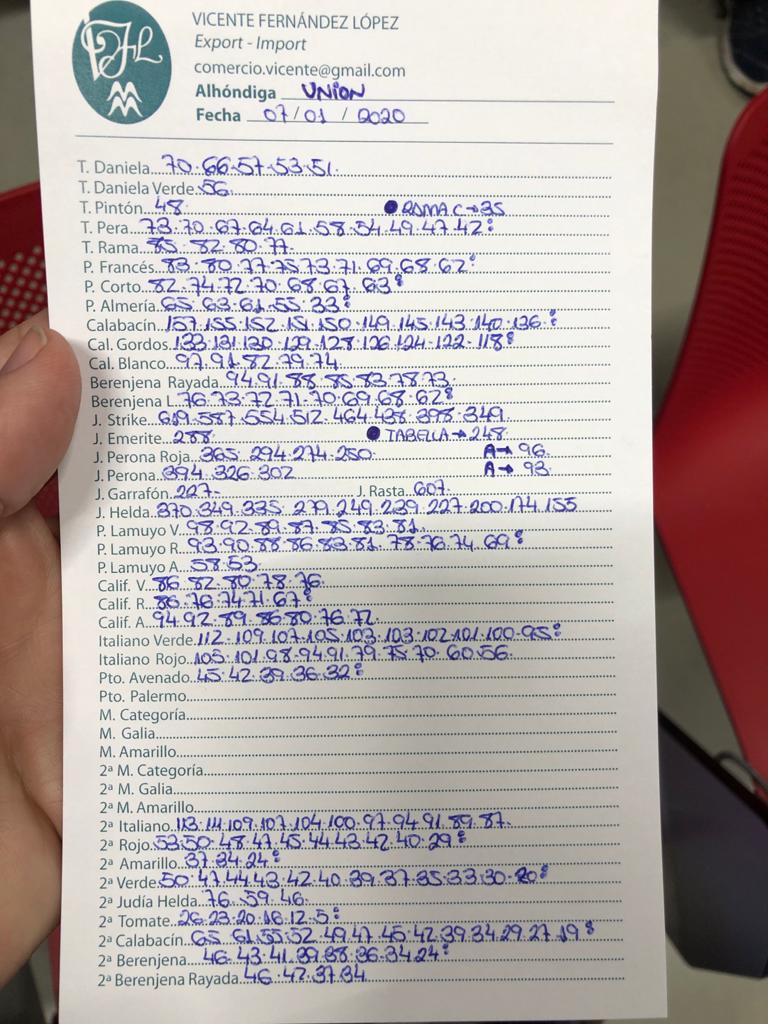 VICENTE FERNÁNDEZ LÓPEZ
Export - Import
comercio.vicente@gmail.com
Alhóndiga UNION
Fecha 07/01/2020
T. Daniela 70.66.57.53.51.
T. Daniela Verde 56.
T. Pintón 48 ● RAMA C→35
T. Pera 73.70.67.64.61.58.54.49.47.42:
T. Rama 85. 82.80.77.
P. Francés 83.80.77.75.73.71.69.68.62:
P. Corto 82.74.72.70.68.67.63:
P. Almería 65.63.61.55.33:
Calabacín 157.155.152.151.150.149.145.143.140.136.:
Cal. Gordos 133.131.130.129.128.126.124-122-118:
Cal. Blanco 97.91.82.79.74.
Berenjena Rayada 94.91.88.85.83.78.73.
Berenjena L 76.73.72.71.70.69.68.62:
J. Strike 619.587.554.512.464.438.398.349.
J. Emerite 288. ● TABELLA→248.
J. Perona Roja 365.294.274.250. A→96
J. Perona 394.326.302 A→93
J. Garrafón 227. J. Rasta 607.
J. Helda 370.349.335.279.249.239.227.200.174.155
P. Lamuyo V. 98.92.89.87.85.83.81.
P. Lamuyo R. 93.90.88.86.83.81.78.76.74.69:
P. Lamuyo A. 58.53.
Calif. V. 86.82.80.78.76.
Calif. R. 86.76.74.71.67:
Calif. A. 94.92.89.86.80.76.72.
Italiano Verde 112.109.107.105.103.103.102.101.100.95:
Italiano Rojo 105.101.98.94.91.79.75.70.60.56.
Pto. Avenado 45.42.39.36.32:
Pto. Palermo
M. Categoría
M. Galia
M. Amarillo
2ª M. Categoría
2ª M. Galia
2ª M. Amarillo
2ª Italiano 113.111.109.107.104.100.97.94.91.89.87.
2ª Rojo 53.50.48.47.45.44.43.42.40.29:
2ª Amarillo 37.34.24:
2ª Verde 50.47.44.43.42.40.39.37.35.33.30.20:
2ª Judía Helda 76.59.46.
2ª Tomate 26.23.20.16.12.5:
2ª Calabacín 65.61.55.52.49.47.45.42.39.34.29.27.19:
2ª Berenjena 46.43.41.39.38.36.34.24:
2ª Berenjena Rayada 46.42.37.34